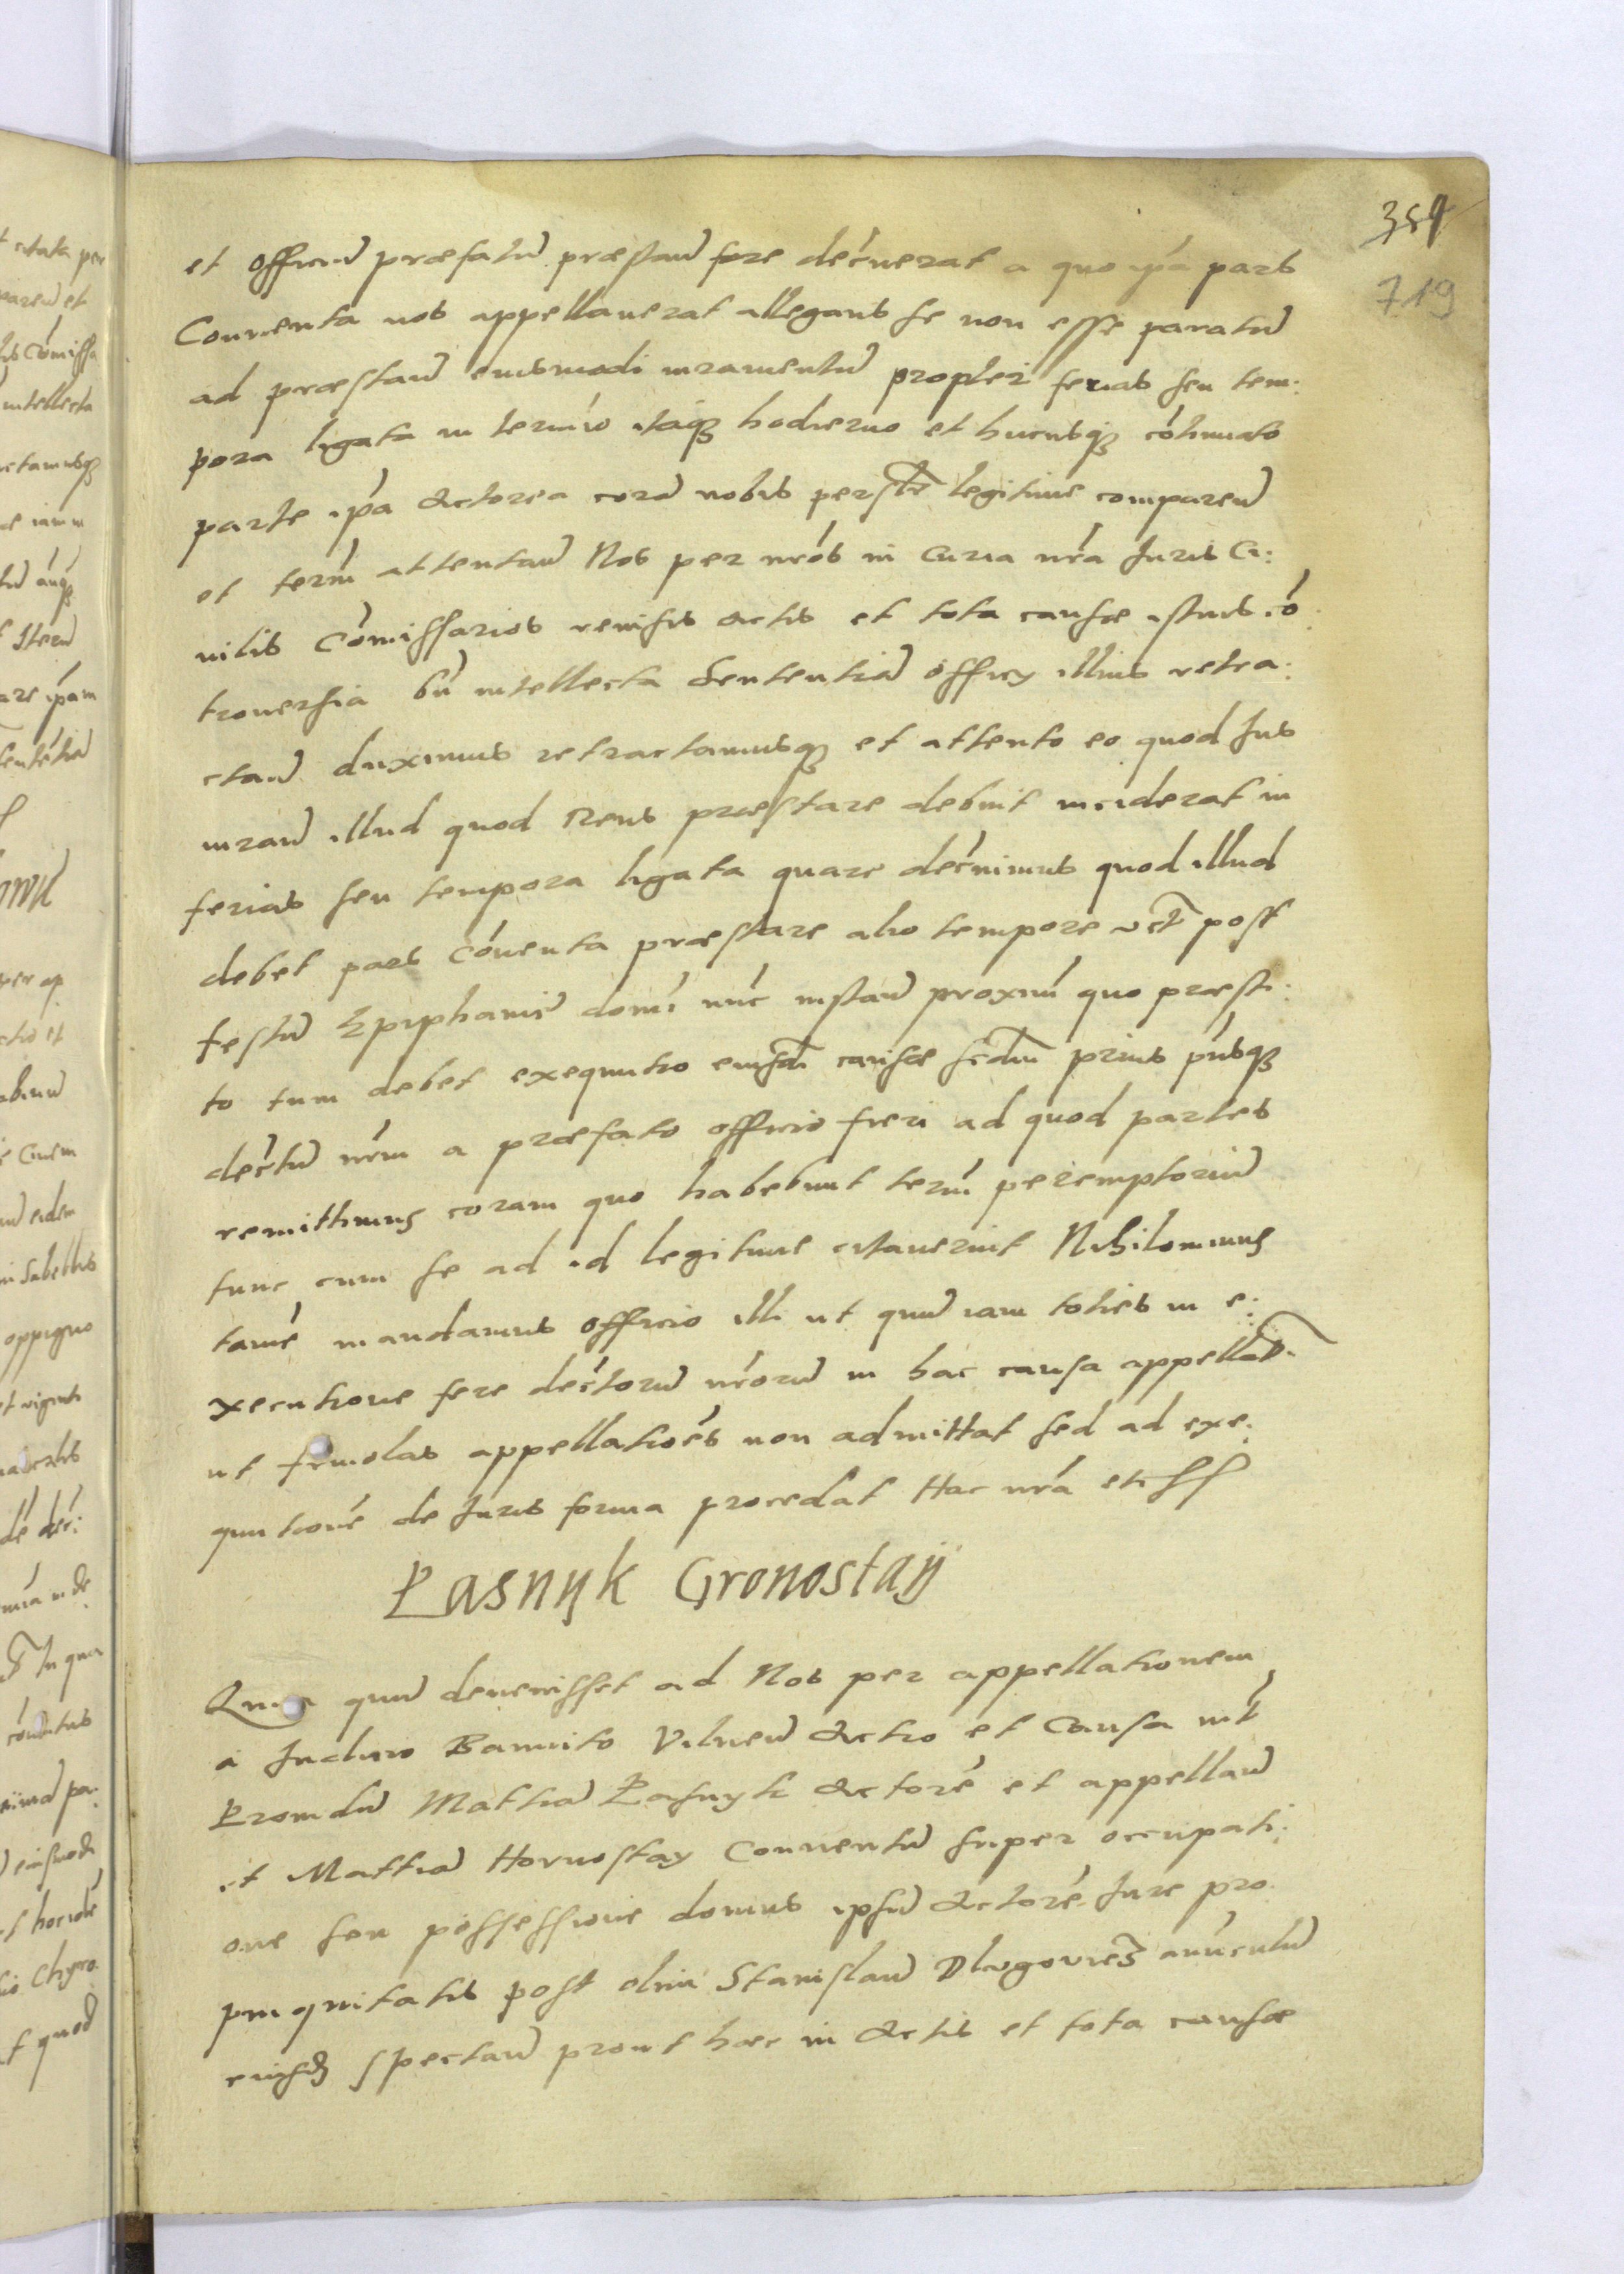 354
719
et officiū præfatū præstanđ fore decrúerat a quo ipá pars
Conventa nos appellauerat allegans se non esse paratū
ad præstanđ eiusmodi iuramentū propter ferias seu tem:
pora ligata in termío itaqꝫ hodierno et hucusqꝫ cótinuato
parte ipá Actorea corā nobis perslr̃ legitime comparenđ
et terḿ attentanđ Nos per nŕos in Curia nŕa Juris Ci:
uilis Cómissarios reuisis actis et tota causæ istius có
trouersia bń intellecta Sententiā officy illius retra:
ctanđ duximus retractamusqꝫ et attento eo quod Jus
iuranđ illud quod Reus præstare debuit inciderat in
ferias seu tempora ligata quare decńimus quod illud
debet pars cóuenta præstare alio tempore vct̃ post
festū Epiphaniæ domí núc instanđ proxiḿ quo præsti:
to tum debet exequutio eiusđ causæ scđm prius prúsqꝫ
decŕtū nŕm a præfato officio fieri ad quod partes
remittimus coram quo habebunt terḿ peremptoriū
tunc cum se ad id legitime citauerint Nihilominus
tamé mandamus officio illi ut quū iam toties in e:
xecutione fere decŕtorū nŕorū in hac causa appellađ
ut friuolas appellatióes non admittat sed ad exe:
quutioné de Juris forma procedat Hac nŕa etc ss
Łasnyk Gronostaÿ
Quia quū deuenisset ad Nos per appellationem
a Judicio Bannito Vilneń Actio et Causa int́
Prouidū Mattiā Łasnyk Actoré et appellanđ
et Mattiā Hornostay Conuentū super occupati:
one seu possessione domus ipsū Actoré Jure pro:
pinquitatis post olim Stanislaū Dlugouies auúculū
eiusđ spectanđ prout hæc in Actis et tota causæ